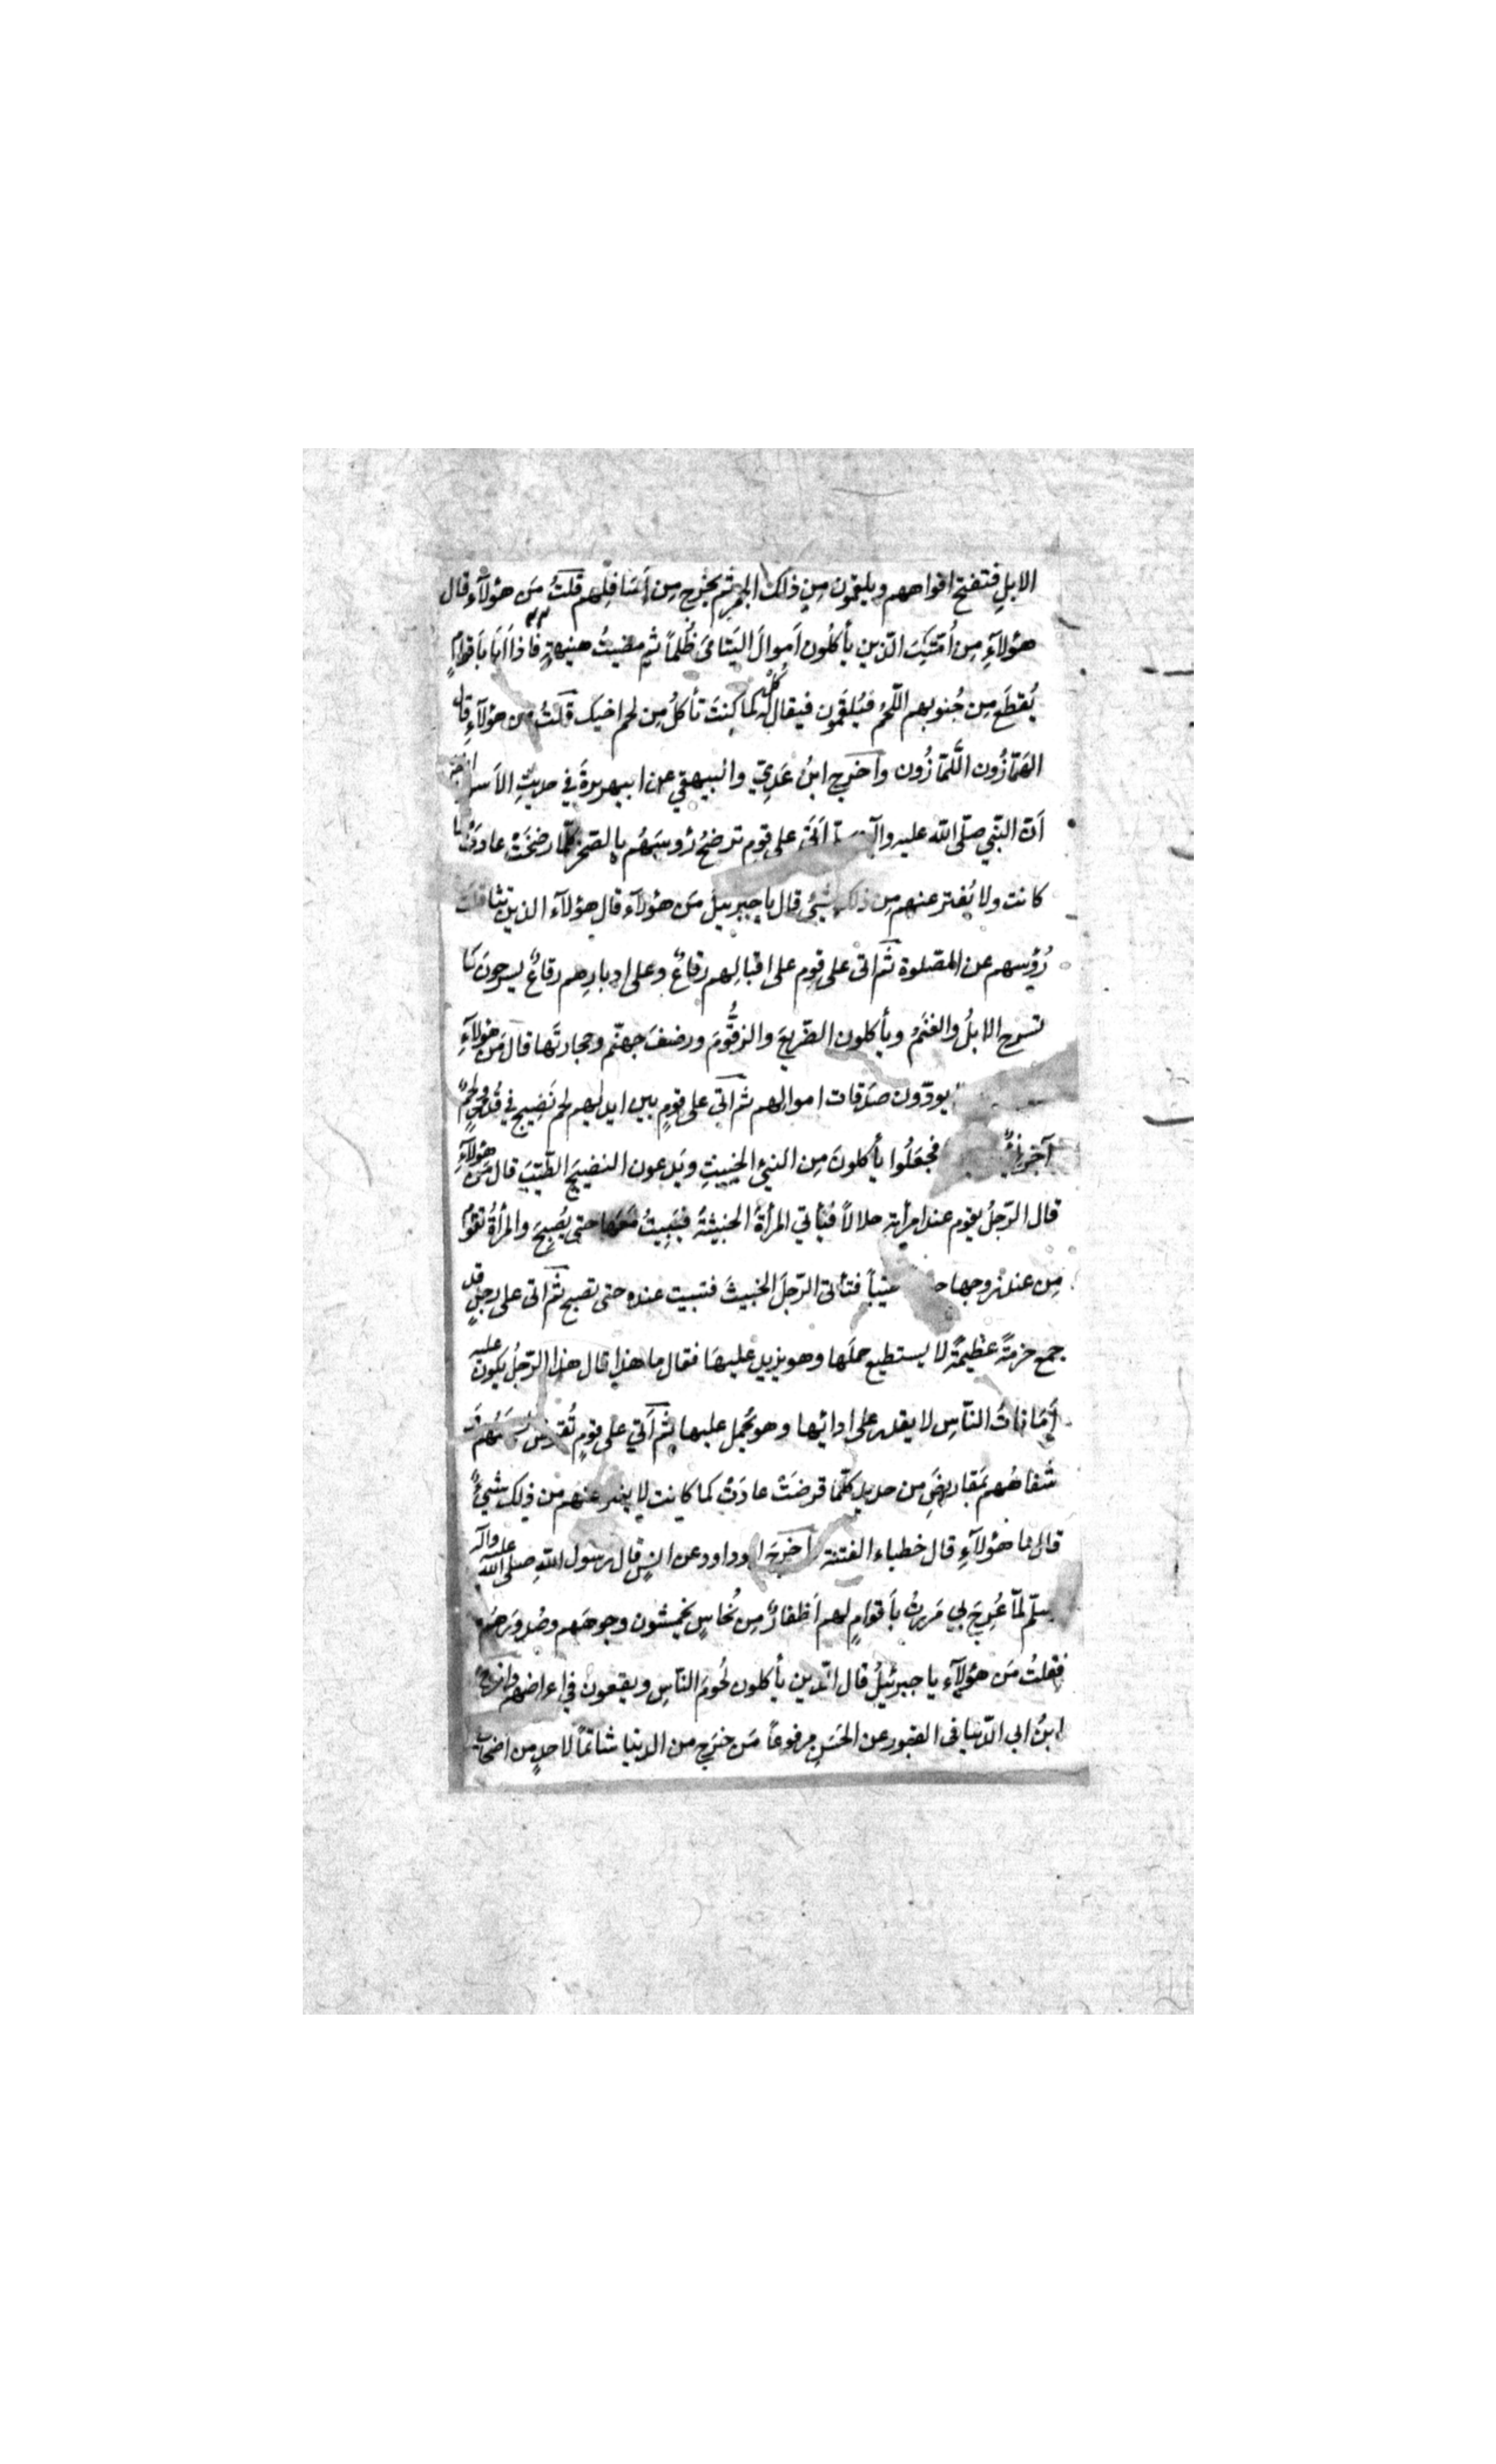 الابلِ فتفتح افواههم ويلقمون مِن ذلك الجمرِ ثم يخرج مِن اَسَافِلِهم قلتُ مَن هؤلآءِ قال
هؤلآءِ مِن اُمّتِكَ الذين يأكلُون اَموالَ اليَتامَى ظُلماً ثم مضيتُ هنيهةٍ فاذا اَنَا بأقوامٍ
يُقطَع مِن جُنوبهم اللّحمُ فيُلقَمُون فيقال كُل كما كنتَ تأكلُ مِن لحم اخيك قلتُ من هؤلآءِ قال
الهَمّازُون اللَّمّازُون واَخرج ابنُ عَدِيّ والبيهقي عن ابيهريرةَ في حديثِ الاَسرا
اَنّ النّبي صلّى الله عليه وآ اَتَى على قوم ترضخُ رُؤسهُم بالصّخر كلّما رضخَتْ عادَتْ كما
كانت ولا يُفتر عنهم مِن ذلك شيئٌ قال يا جبرئيلُ مَن هؤلآءِ قال هؤلآء الذين تثاقلت
رُؤسهم عن الصّلوة ثم اتى على قوم على اقبالِهم رقاعٌ وعلى ادبارِهم رقاعٌ يسرحونَ كما
تسرح الابلُ والغنَمُ ويأكلون الضّريعَ والزقُّومَ ورضفَ جهنّم وحجارتَها قال مَن هؤلآءِ
يودّون صدَقات اموالهم ثم اَتَى على قومٍ بين ايديهم لحم نَضِيج في قُدورٍ ولحمٌ
آخر فجعَلُوا يأكلونَ مِن النيْ الخبيثِ ويَدعون النضيجَ الطّيّبَ قال مَن هؤلآءِ
قال الرّجلُ يقوم عند امرأتهِ حلالاً فيأتي المرأةَ الخبيثةَ فيبيتُ مَعَها حتى يُصبحَ والمرأةُ تقوم
مِن عند زوجها طيّباً فتأتى الرّجلَ الخبيثَ فتبيت عنده حتى تصبح ثم اتى على رجلٍ قد
جمع حزمةً عظيمةً لا يستطيع حملَها وهو يزيد عليها فقال ما هذا قال هذا الرّجلُ يكون عليه
اَمَاناتُ النّاسِ لا يقدر على ادائِها وهو يحمل عليها ثم اَتَى على قومٍ تُقرَض
شَفاهُهم بمَقاريضَ مِن حديدٍ كلّما قرضَتْ عادَتْ كما كانت لا يفتر عنهم من ذلك شيئٌ
قال ما هؤلآءِ قال خطباء الفتنة اَخرَج ابو داود عن انسٍ قال رسول اللهِ صلى الله عليه وآله
وسلّم لمّا عُرِجَ بي مَررتُ بأقوامٍ لهم اَظفارٌ مِن نُحاسٍ يخمشون وجوهَهم وصُدورَهُم
فقلتُ مَن هؤلآءِ يا جبرئيلُ قال الّذين يأكلون لُحومَ النّاسِ ويقعون في اعراضهم واَخرَج
ابنُ ابي الدّنيا في القبور عن الحَسَن مرفوعاً مَن خرَج من الدنيا شاتماً لاحدٍ من اصحابي